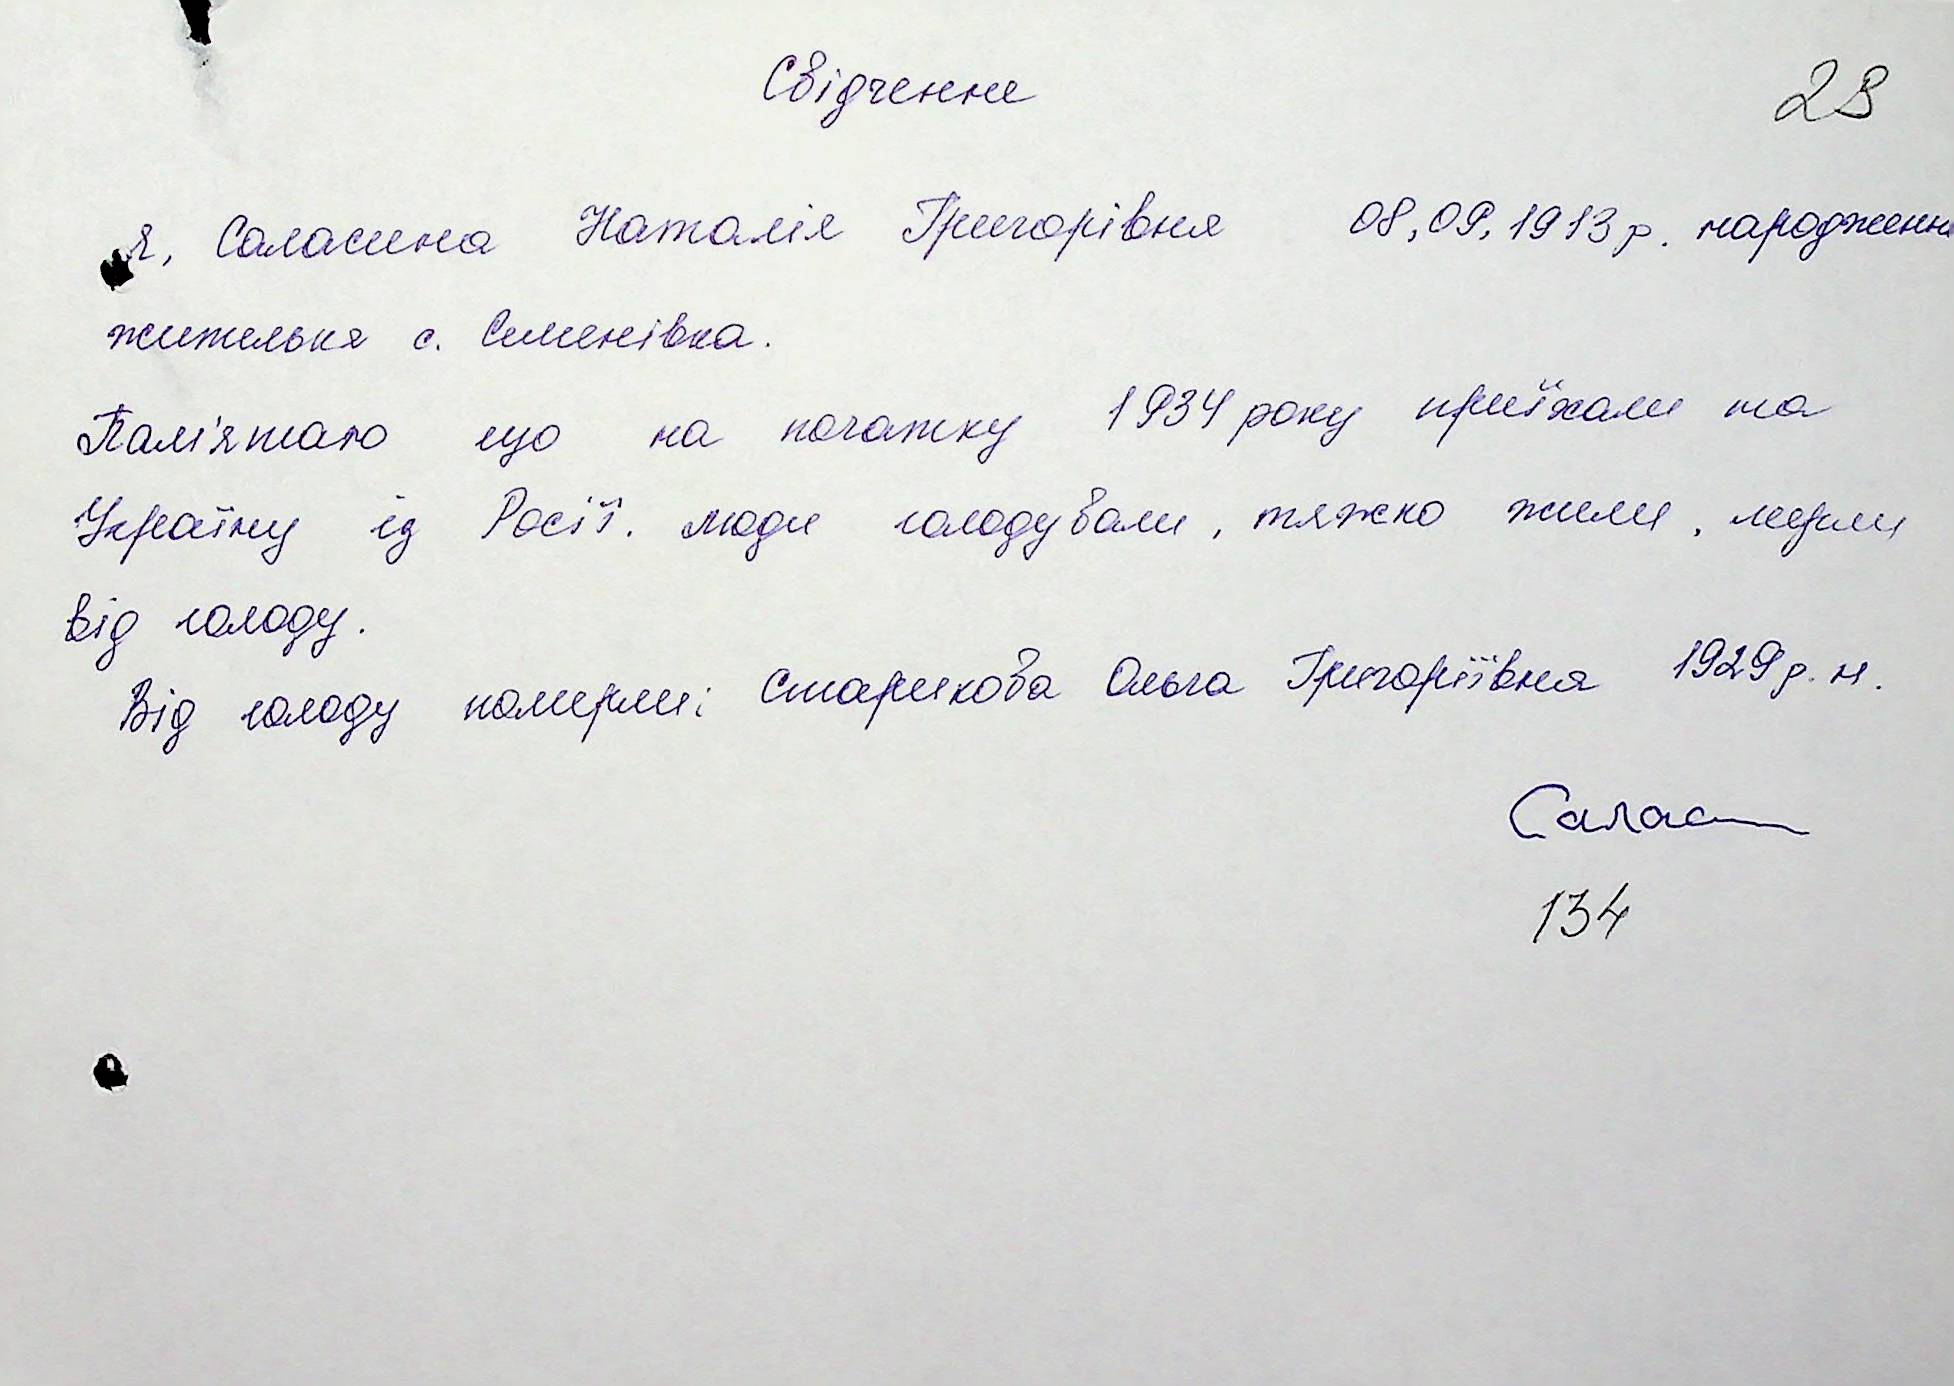 Свідчення
28
Я, Саласина Наталія Григорівня 08.09.1913 р. народження
жителькя с. Семенівка.
Пам'ятаю що на початку 1934 року приїхали на
Україну із Росії. люди голодували, тяжко жили, мерли
від голоду.
Від голоду померли: Старикова Ольга Григоріївня 1929 р. н.
Салас
134